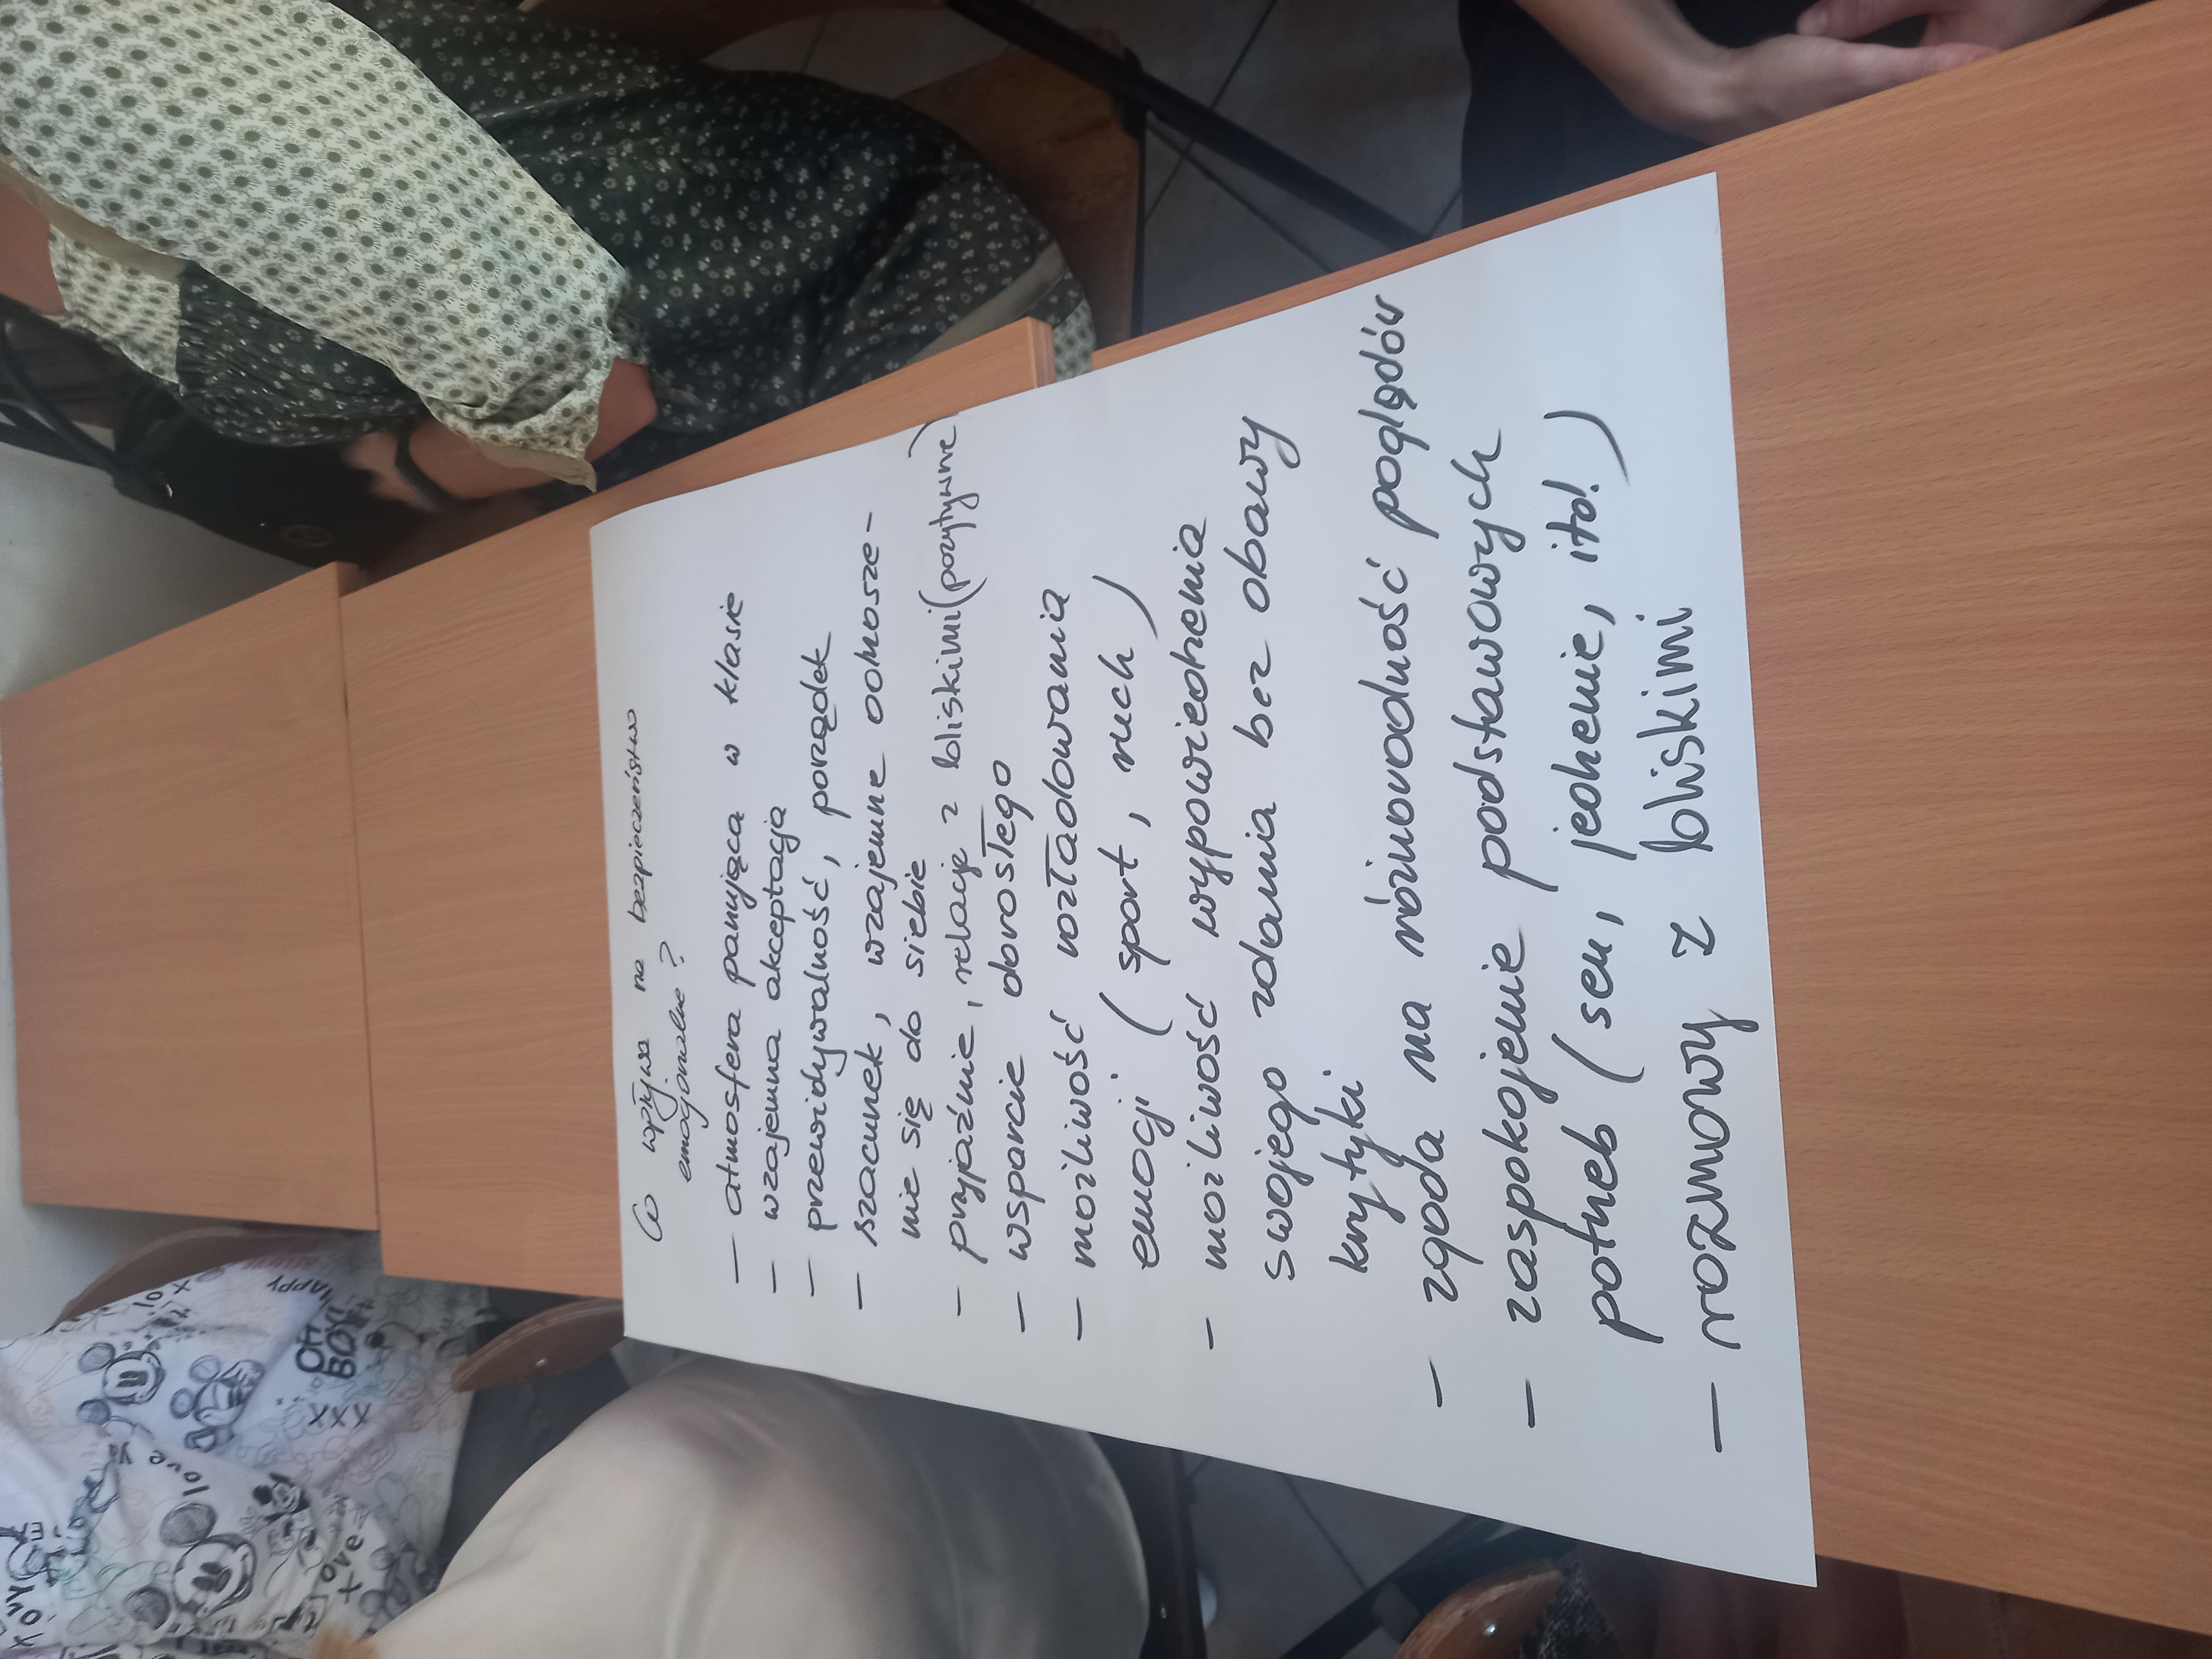 Co wpływa na bezpieczeństwo
emocjonalne?
- atmosfera panująca w klasie
- wzajemna akceptacja
- przewidywalność, porządek
- szacunek, wzajemne odnosze-
nie się do siebie
- przyjaźnie, relacje z bliskimi (pozytywne)
- wsparcie dorosłego
- możliwość rozładowania
emocji (sport, ruch)
- możliwość wypowiedzenia
swojego zdania bez obawy
krytyki
- zgoda na różnorodność poglądów
- zaspokojenie podstawowych
potrzeb (sen, jedzenie, itd.)
- rozmowy z bliskimi
OH
BOY
XXX
HAPPY
love
love
X